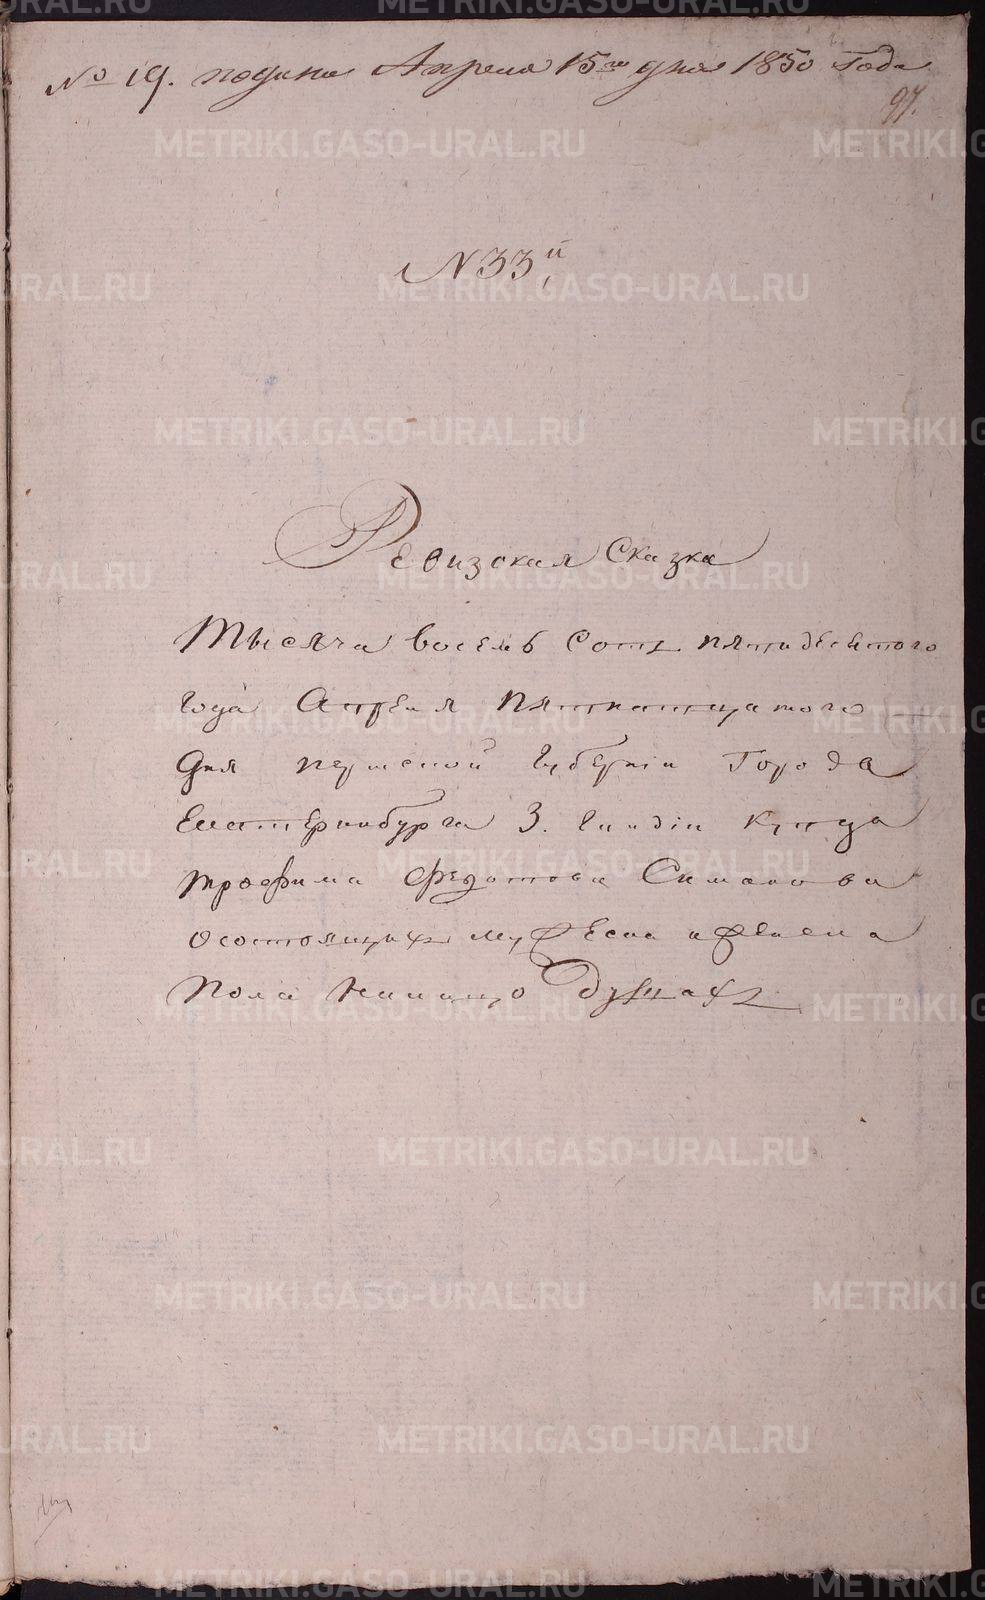 № 19. подана Апреля 15го дня 1850 Года
97.
N 33й
Ревизская Сказка
Тысяча восемь Сотъ пятидесятого
года Апреля Пятнатцатого
Дня пермской Губерніи Города
Екатеринбурга 3. гилдіи купца
трофима Федотова Симанова
осостоящихъ мужеска иженска
Пола налицо Душахъ
METRIKI.GASO-URAL.RU